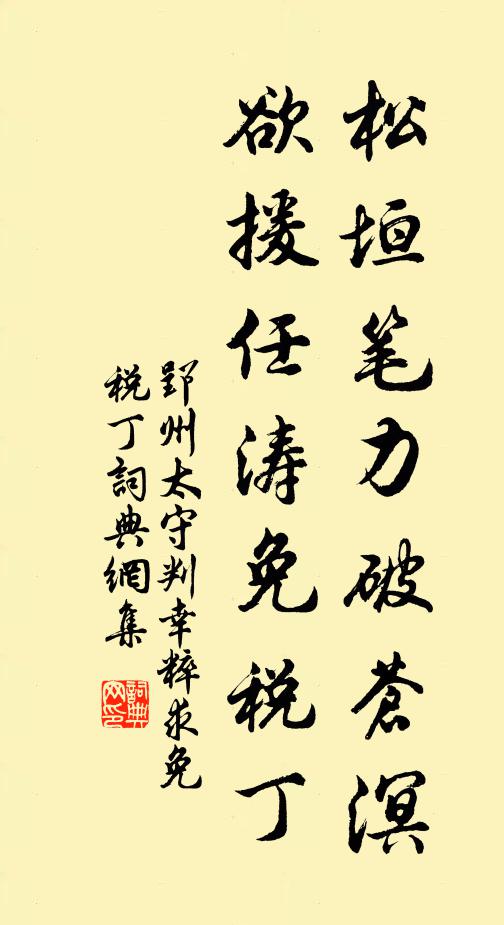 松垣笔力破苍溟
欲援任涛免税丁
郢州太守判幸粹求免
税丁詞典網集
詞典